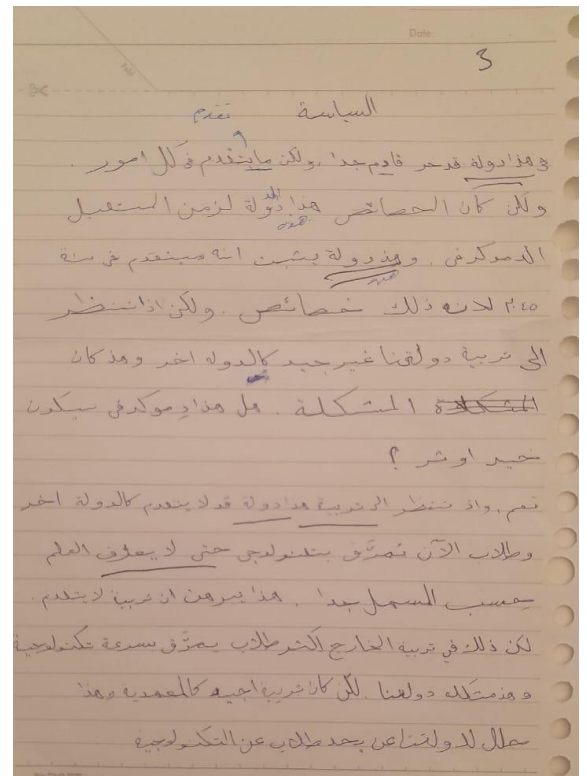 Date
3
السياسة
تقدم
هذا دولة قد حر قادم جدا. ولكن ما يتقدم في كل امور.
ولكن كان الخصائص هذا الدولة لزمن المستقبل
هذه
الدموكرفي. وهذ دولة يثبت انه سيتقدم في سنة
٢٠٤٥ لانه ذلك خصائص. ولكن اذا ننظر
الى تربية دولتنا غير جيد كالدوله اخر وهذ كان
المشكلة. هل هذا دموكرفي سيكون
خير او شر ؟
نعم. واذ ننظر الى تربية هذا دولة قد لا يتقدم كالدولة اخر
وطلاب الآن بتكنولوجي حتى لا يعارف العلم
يحسب المسهل جدا. هذا يبرهن ان تربية لا يتقدم.
لكن ذلك في تربية الخارج اكثر طلاب بسرعة تكنولوجية
وهذ مشكله دولتنا. لكن كان تربية وهذا
لدولتنا عن طلاب عن التكنولوجية